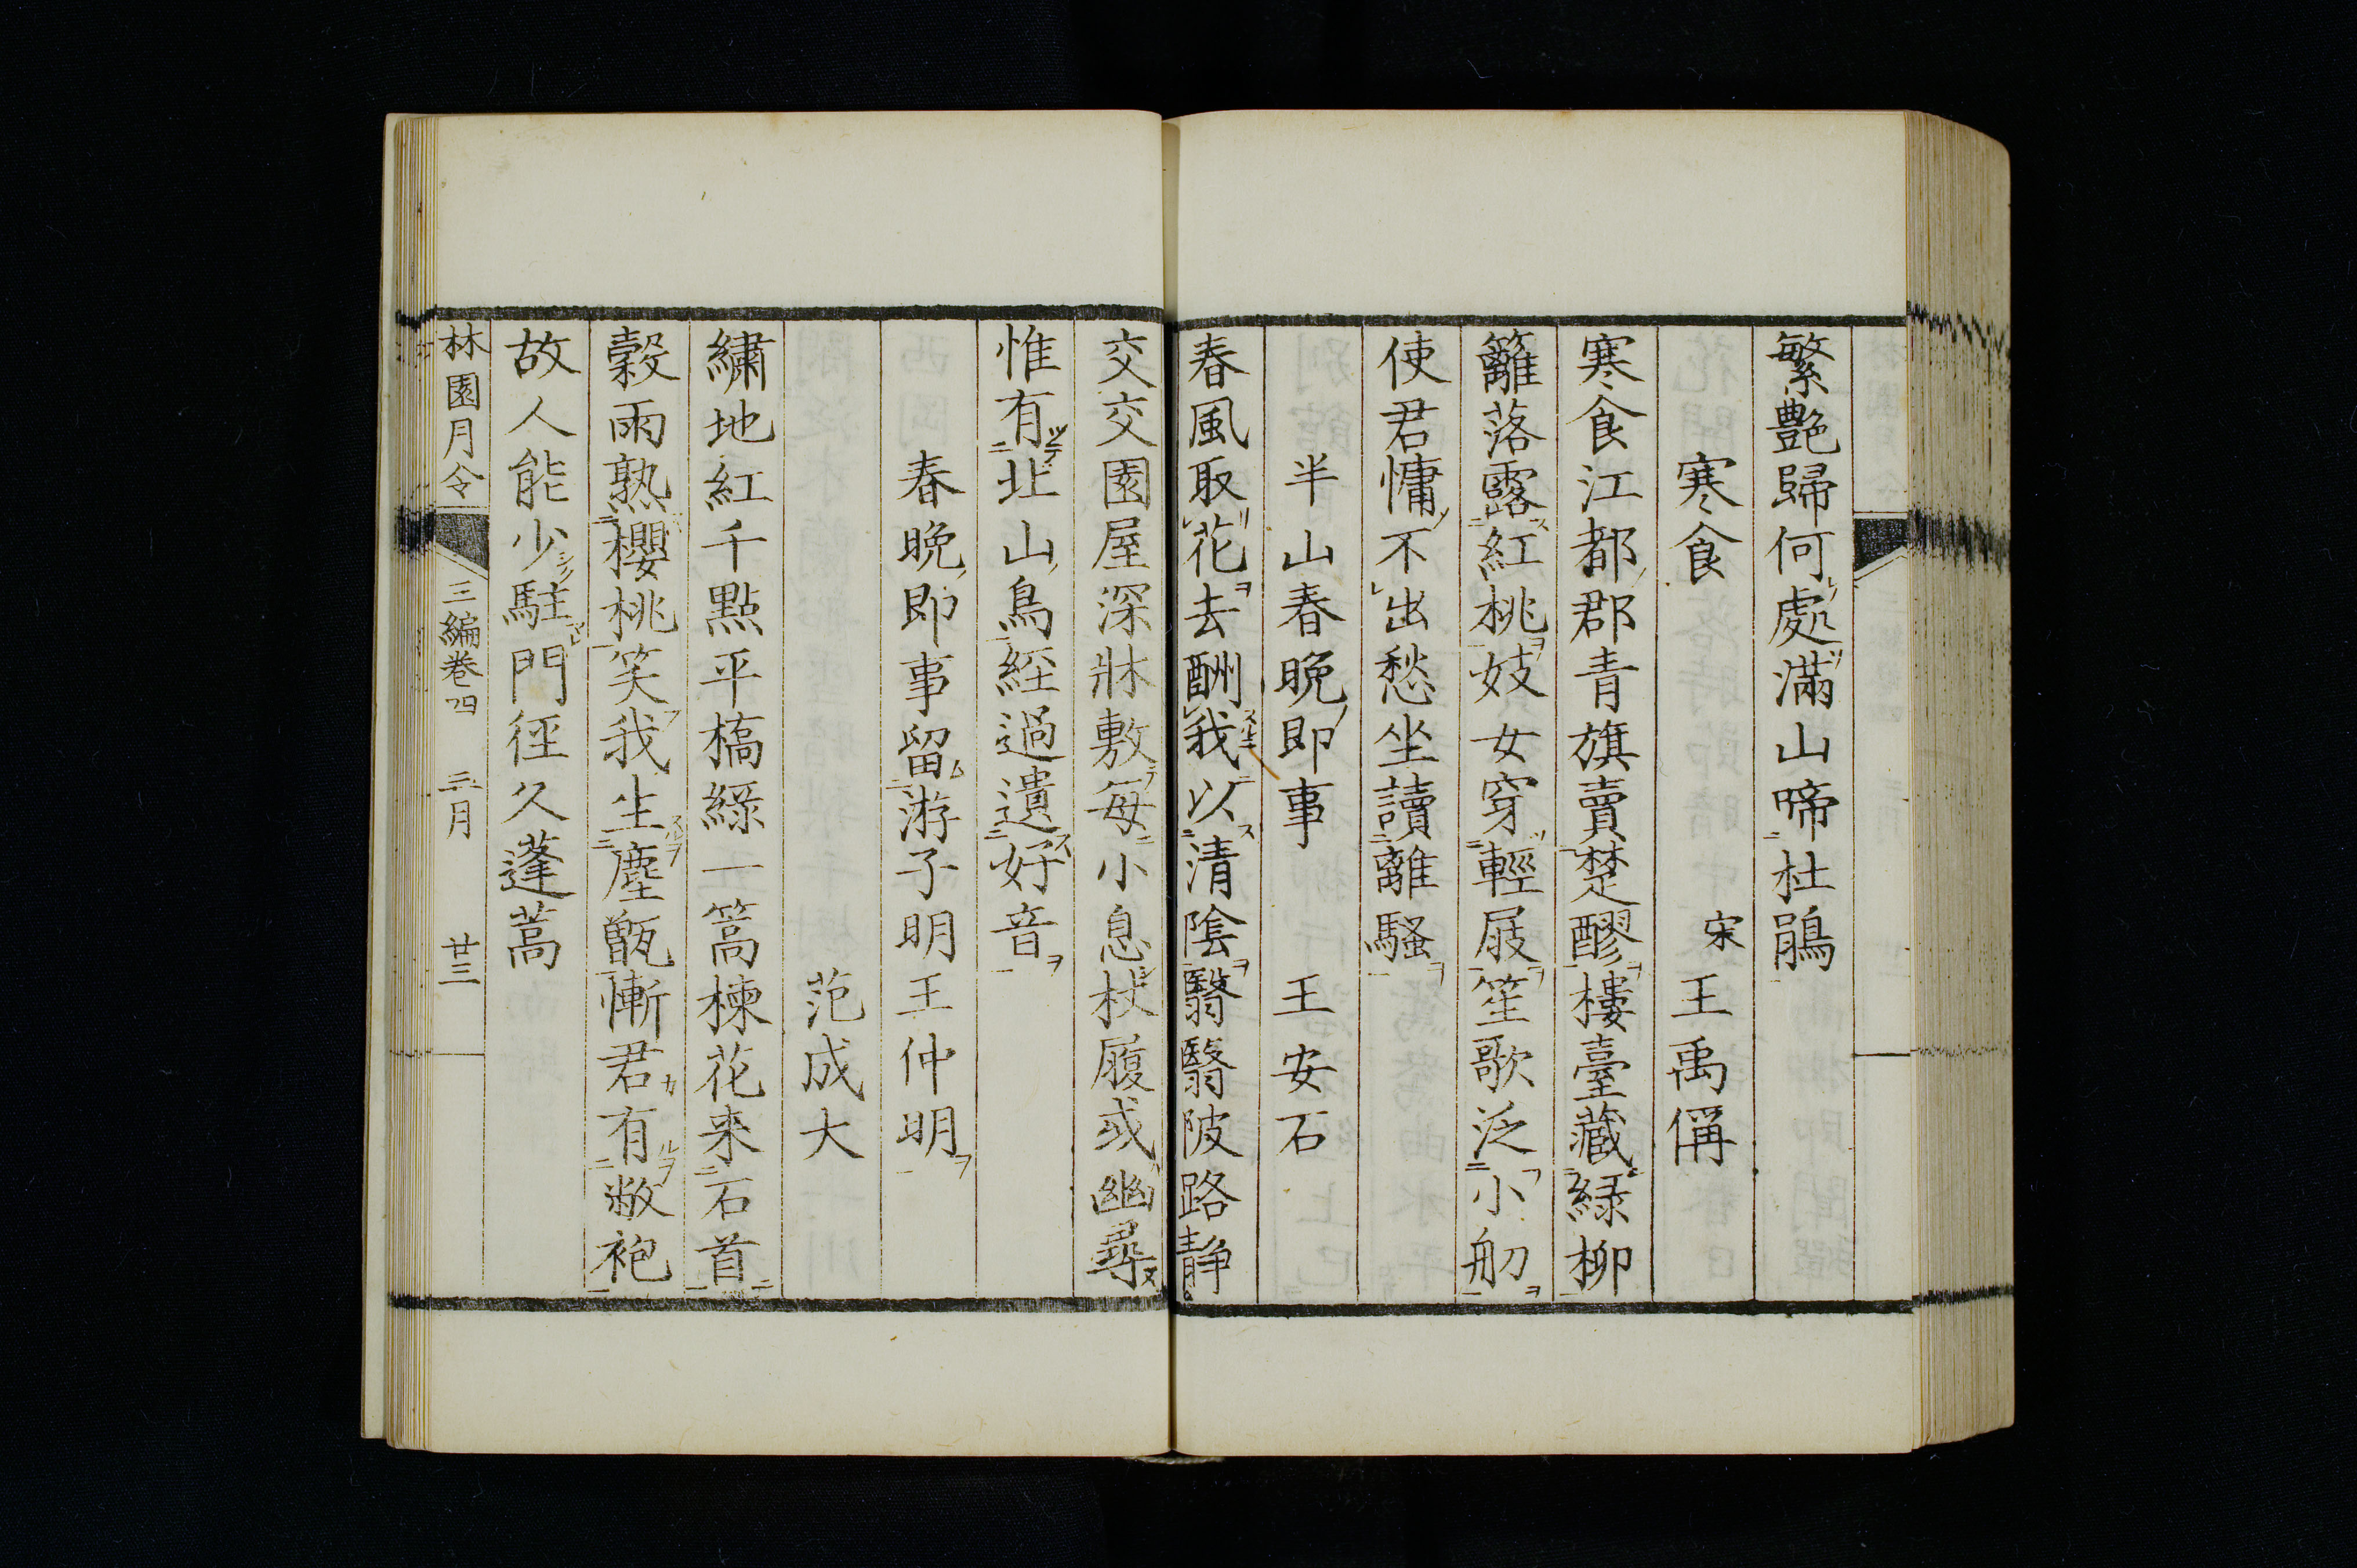 繁艷歸何處滿山啼杜鵑
寒食 宋 王禹偁
寒食江都郡青旗賣楚醪樓臺藏綠柳
籬落露紅桃妓女穿輕屐笙歌泛小舠
使君慵不出愁坐讀離騷
半山春晚即事 王安石
春風取花去酬我以清陰翳翳陂路靜
交交園屋深牀敷每小息杖履或幽尋
惟有北山鳥經過遺好音
春晚即事留游子明王仲明
范成大
繡地紅千點平橋綠一篙楝花來石首
穀雨熟櫻桃笑我生塵甑慚君有敝袍
故人能少駐門徑久蓬蒿
林園月令 三編卷四 三月 廿三